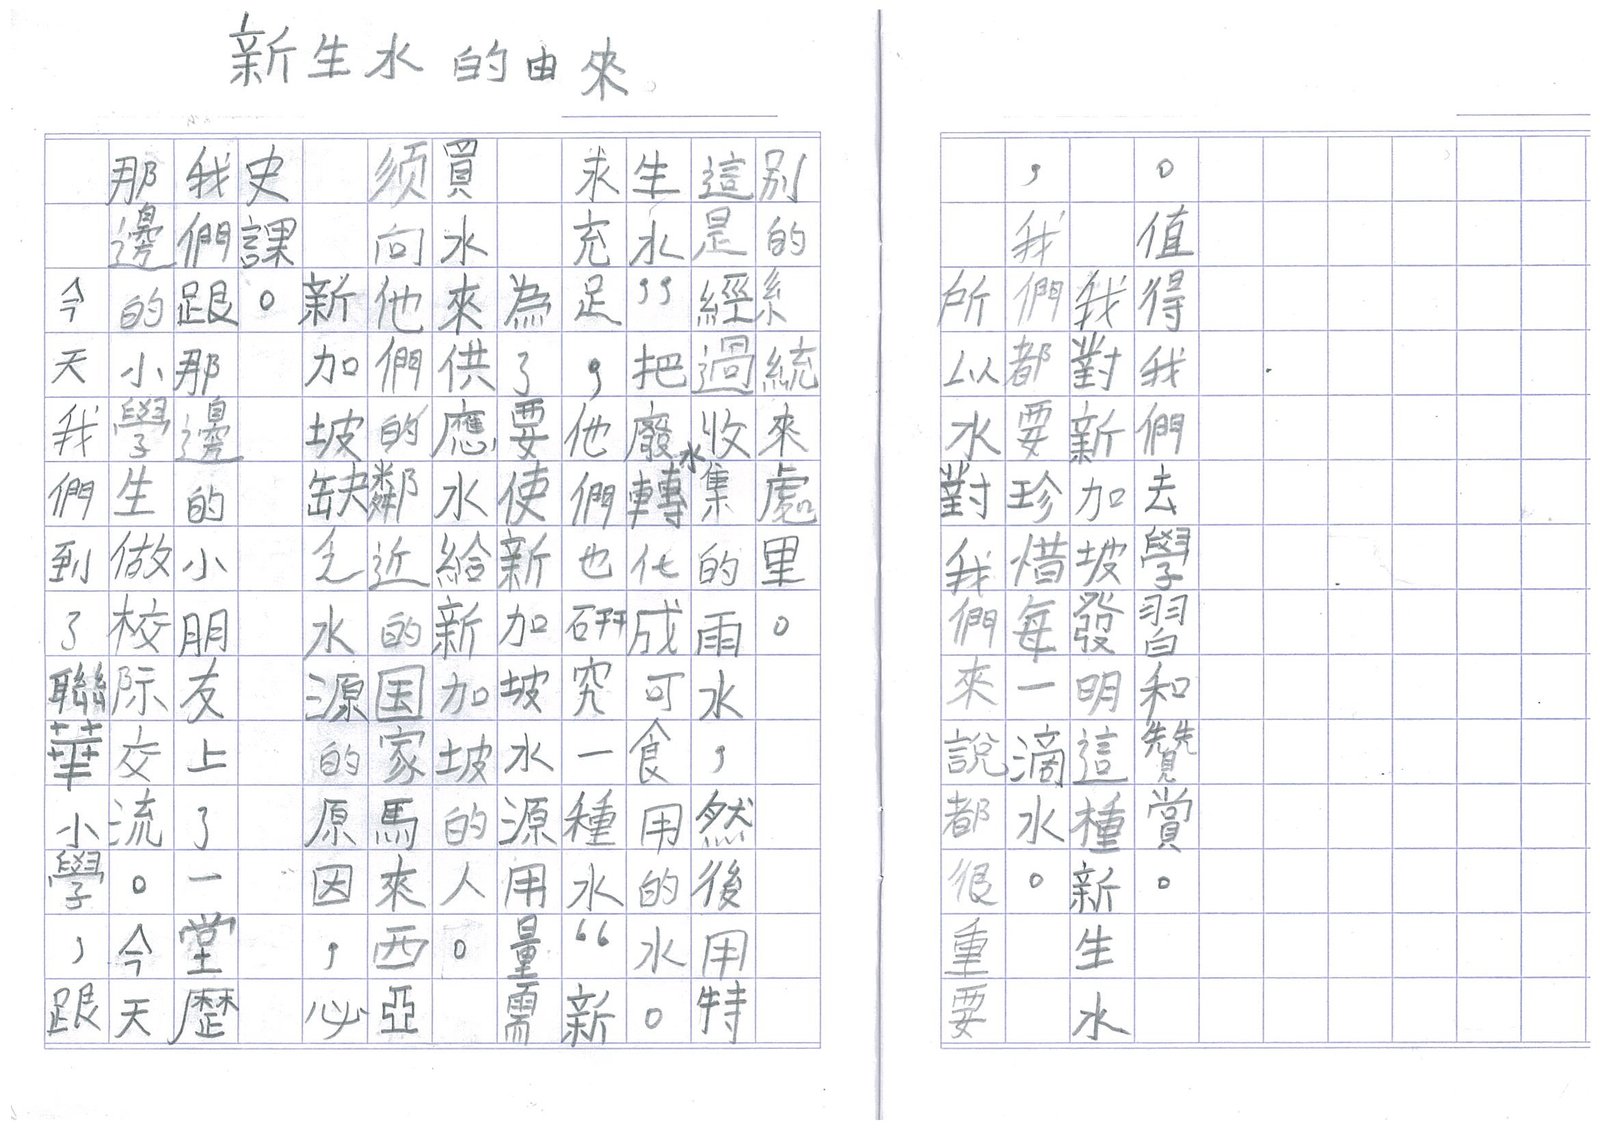 新生水的由來
今天我們到了聯華小學，跟
那邊的小學生做校际交流。今天
我們跟那邊的小朋友上了一堂歷
史課。
新加坡缺乏水源的原因，必
须向他們的鄰近的国家馬來西亞
買水來供應水給新加坡的人。
為了要使新加坡水源用量需
求充足，他們也研究一種水“新
生水”把廢水轉化成可食用的水。
這是經過收集的雨水，然後用特
別的系統來處里。
所以水對我們來說都很重要
，我們都要珍惜每一滴水。
我對新加坡發明這種新生水
。值得我們去學習和贊賞。